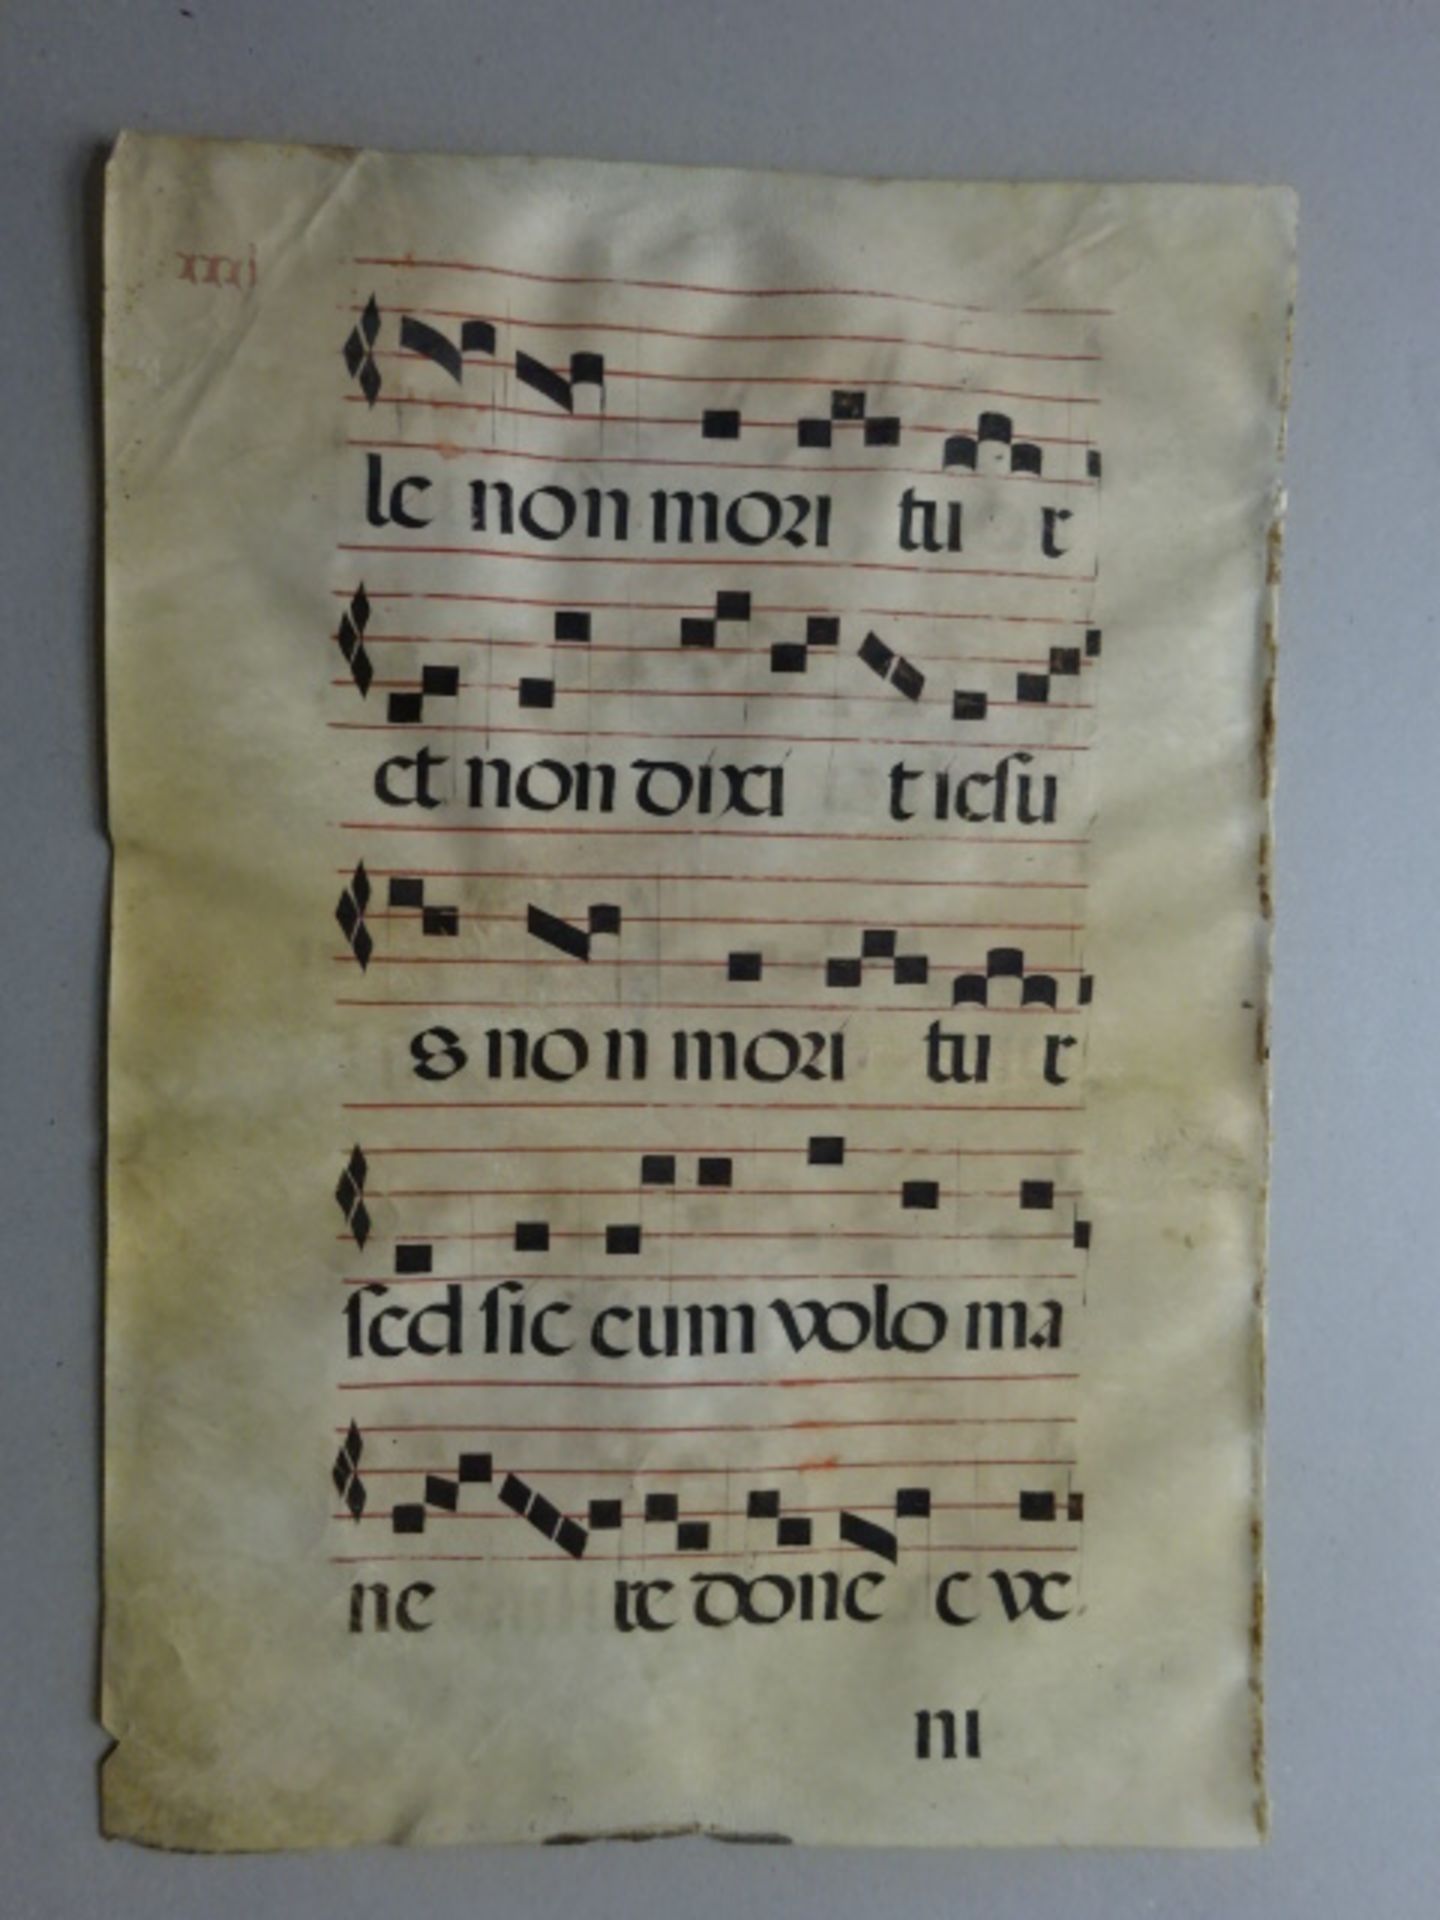 xxxj
le non mori tu r
et non dixi t iesu
s no n mori tu r
sed sic cum volo ma
ne re done c ve
ni